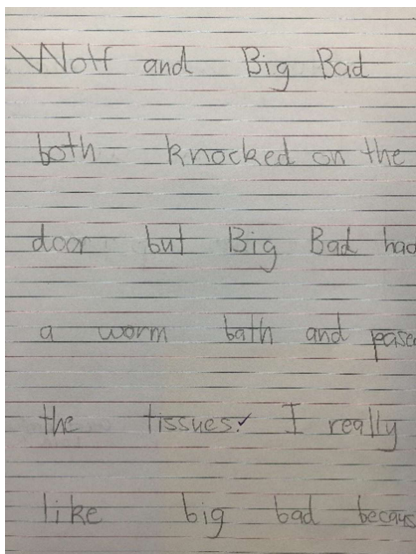 Wolf and Big Bad
both knocked on the
door but Big Bad had
a worm bath and pased
the tissues. I really
like big bad becaus